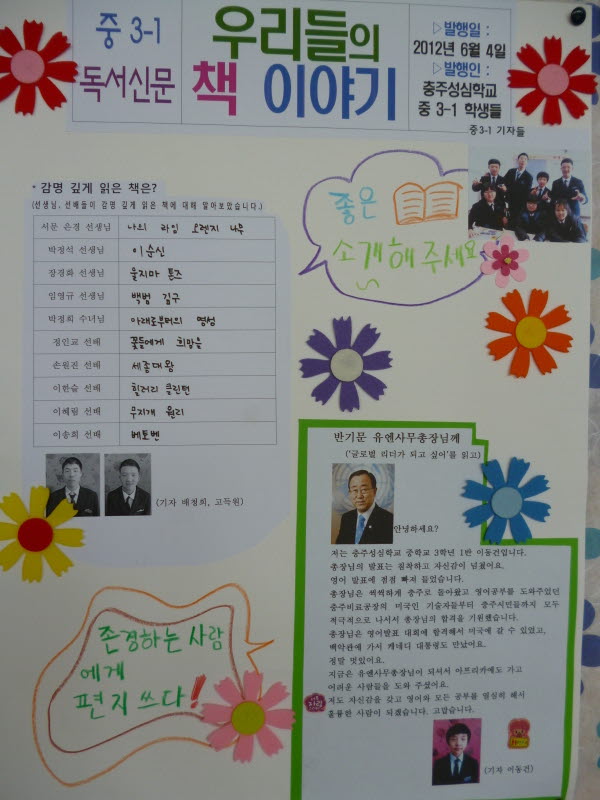 중 3-1
독서신문
우리들의
책 이야기
▷발행일 :
2012년 6월 4일
▷발행인 :
충주성심학교
중 3-1 학생들
중3-1 기자들
감명 깊게 읽은 책은?
(선생님, 선배들이 감명 깊게 읽은 책에 대해 알아보았습니다.)
서문 은경 선생님 나의 라임 오렌지 나무
박정석 선생님 이순신
장경화 선생님 울지마 톤즈
임영규 선생님 백범 김구
박정희 수녀님 아래로부터의 영성
정인교 선배 꽃들에게 희망을
손원진 선배 세종대왕
이한슬 선배 힐러리 클린턴
이혜림 선배 무지개 원리
이송희 선배 베토벤
(기자 배정희, 고득원)
좋은
소개해 주세요
반기문 유엔사무총장님께
('글로벌 리더가 되고 싶어'를 읽고)
안녕하세요?
저는 충주성심학교 중학교 3학년 1반 이동건입니다.
총장님의 발표는 침착하고 자신감이 넘쳤어요.
영어 발표에 점점 빠져 들었습니다.
총장님은 씩씩하게 충주로 돌아왔고 영어공부를 도와주었던
충주비료공장의 미국인 기술자들부터 충주시민들까지 모두
적극적으로 나서서 총장님의 합격을 기원했습니다.
총장님은 영어발표 대회에 합격해서 미국에 갈 수 있었고,
백악관에 가서 케네디 대통령도 만났어요.
정말 멋있어요.
지금은 유엔사무총장님이 되셔서 아프리카에도 가고
어려운 사람들을 도와 주셨어요.
저도 자신감을 갖고 영어와 모든 공부를 열심히 해서
훌륭한 사람이 되겠습니다. 고맙습니다.
(기자 이동건)
존경하는 사람
에게
편지 쓰다!